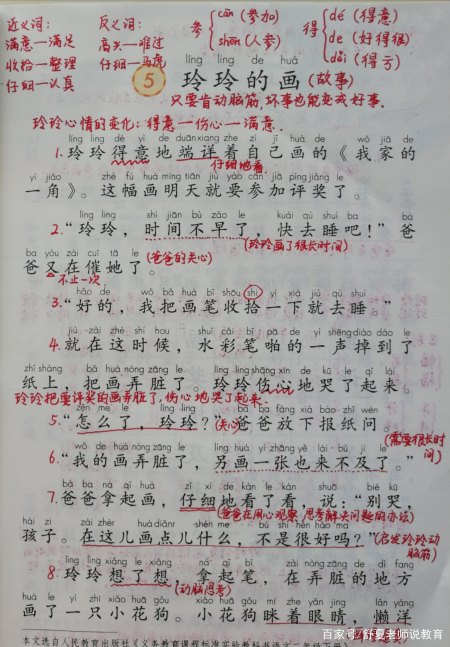 近义词:
满意—满足
收拾—整理
仔细—认真
反义词:
高兴—难过
仔细—马虎
参 cān (参加)
shēn (人参)
得 dé (得意)
de (好得很)
děi (得亏)
líng líng de huà
5 玲玲的画 (故事)
只要肯动脑筋,坏事也能变成好事.
玲玲心情的变化:得意—伤心—满意.
líng líng dé yì de duān xiáng zhe zì jǐ huà de wǒ jiā de
1.玲玲得意地端详着自己画的《我家的
仔细地看.
yì jiǎo zhè fú huà míng tiān jiù yào cān jiā píng jiǎng le
一角》。这幅画明天就要参加评奖了。
líng líng shí jiān bù zǎo le kuài qù shuì ba bà
2.“玲玲,时间不早了,快去睡吧!”爸
(玲玲画了很长时间)
ba yòu zài cuī tā le
爸又在催她了。(爸爸的关心)
不止一次.
hǎo de wǒ bǎ huà bǐ shōu shi yí xià jiù qù shuì
3.“好的,我把画笔收拾一下就去睡。”
jiù zài zhè shí hou shuǐ cǎi bǐ pā de yì shēng diào dào le
4.就在这时候,水彩笔啪的一声掉到了
zhǐ shàng bǎ huà nòng zāng le líng líng shāng xīn de kū le qǐ lái
纸上,把画弄脏了。玲玲伤心地哭了起来。
玲玲把要评奖的画弄脏了,伤心地哭了起来.
zěn me le líng líng bà ba fàng xià bào zhǐ wèn
5.“怎么了,玲玲?”(关心)爸爸放下报纸问。
(需要很长时间)
wǒ de huà nòng zāng le lìng huà yì zhāng yě lái bù jí le
6.“我的画弄脏了,另画一张也来不及了。”
bà ba ná qǐ huà zǐ xì de kàn le kàn shuō bié kū
7.爸爸拿起画,仔细地看了看,说:“别哭,
(爸爸在用心观察,思考解决问题的办法)
hái zi zài zhèr huà diǎnr shén me bú shì hěn hǎo ma
孩子。在这儿画点儿什么,不是很好吗?”
(启发玲玲动脑筋)
líng líng xiǎng le xiǎng ná qǐ bǐ zài nòng zāng de dì fang
8.玲玲想了想,拿起笔,在弄脏的地方
(动脑思考)
huà le yì zhī xiǎo huā gǒu xiǎo huā gǒu mī zhe yǎn jing lǎn yáng
画了一只小花狗。小花狗眯着眼睛,懒洋
本文选自人民教育出版社《义务教育课程标准实验教科书语文二年级下册》
百家号/舒夏老师说教育